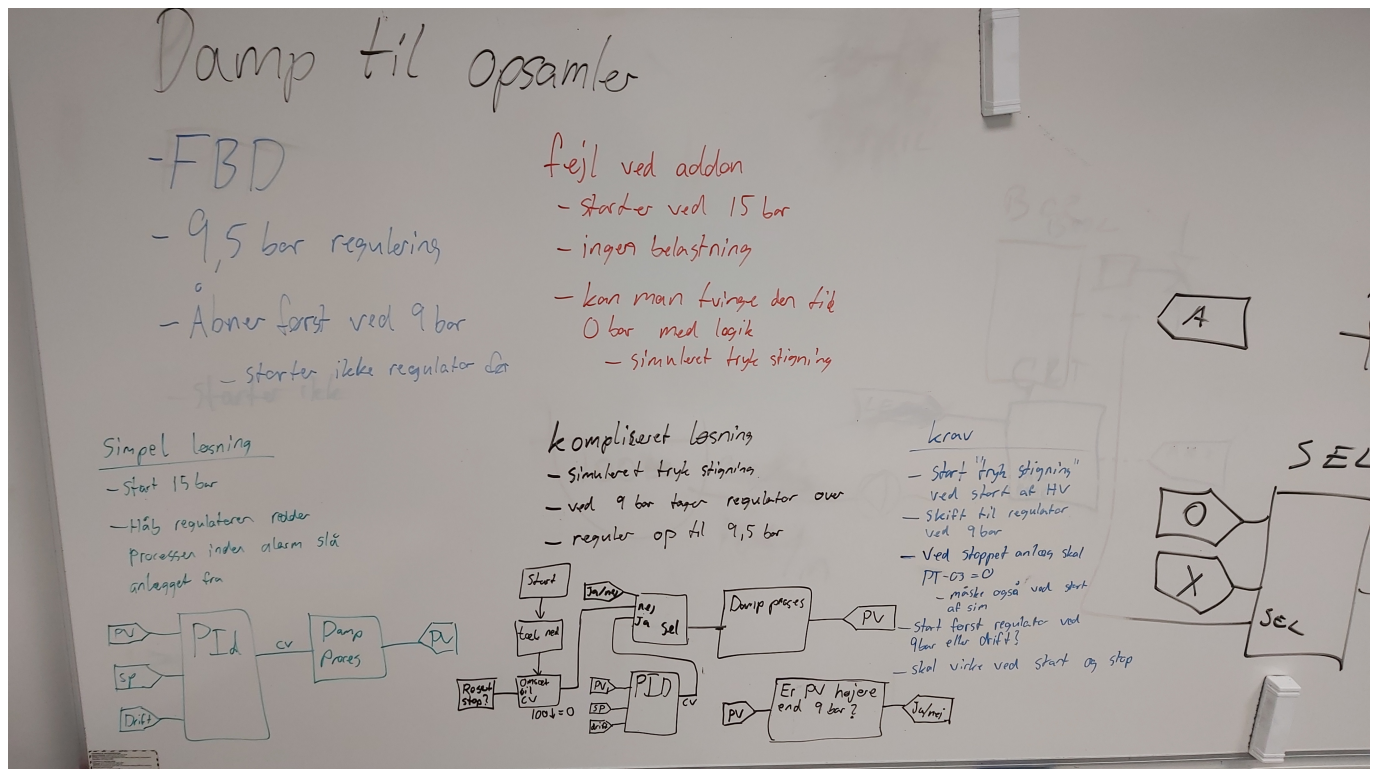 Damp til opsamler
- FBD
- 9,5 bar regulering
- Åbner først ved 9 bar
- starter ikke regulator før
fejl ved addon
- starter ved 15 bar
- ingen belastning
- kan man tvinge den til
0 bar med logik
- simuleret tryk stigning
Simpel løsning
- Start 15 bar
- Håb regulatoren redder
processen inden alarm slå
anlægget fra
PV
SP
Drift
PId
CV
Damp
Proces
PV
kompliseret løsning
- simuleret tryk stigning
- ved 9 bar tager regulator over
- reguler op til 9,5 bar
Start
tæl ned
Reset
stop?
Omsæt
til
CV
100↓=0
Ja/nej
nej
Ja
Sel
Damp proses
PV
PV
SP
drift
PID
CV
PV
Er PV højere
end 9 bar?
Ja/nej
krav
- Start "tryk stigning"
ved start af HV
- Skift til regulator
ved 9 bar
- Ved stoppet anlæg skal
PT-03=0
- måske også ved start
af sim
- start først regulator ved
9bar eller drift?
- skal virke ved start og stop
A
SEL
O
X
SEL